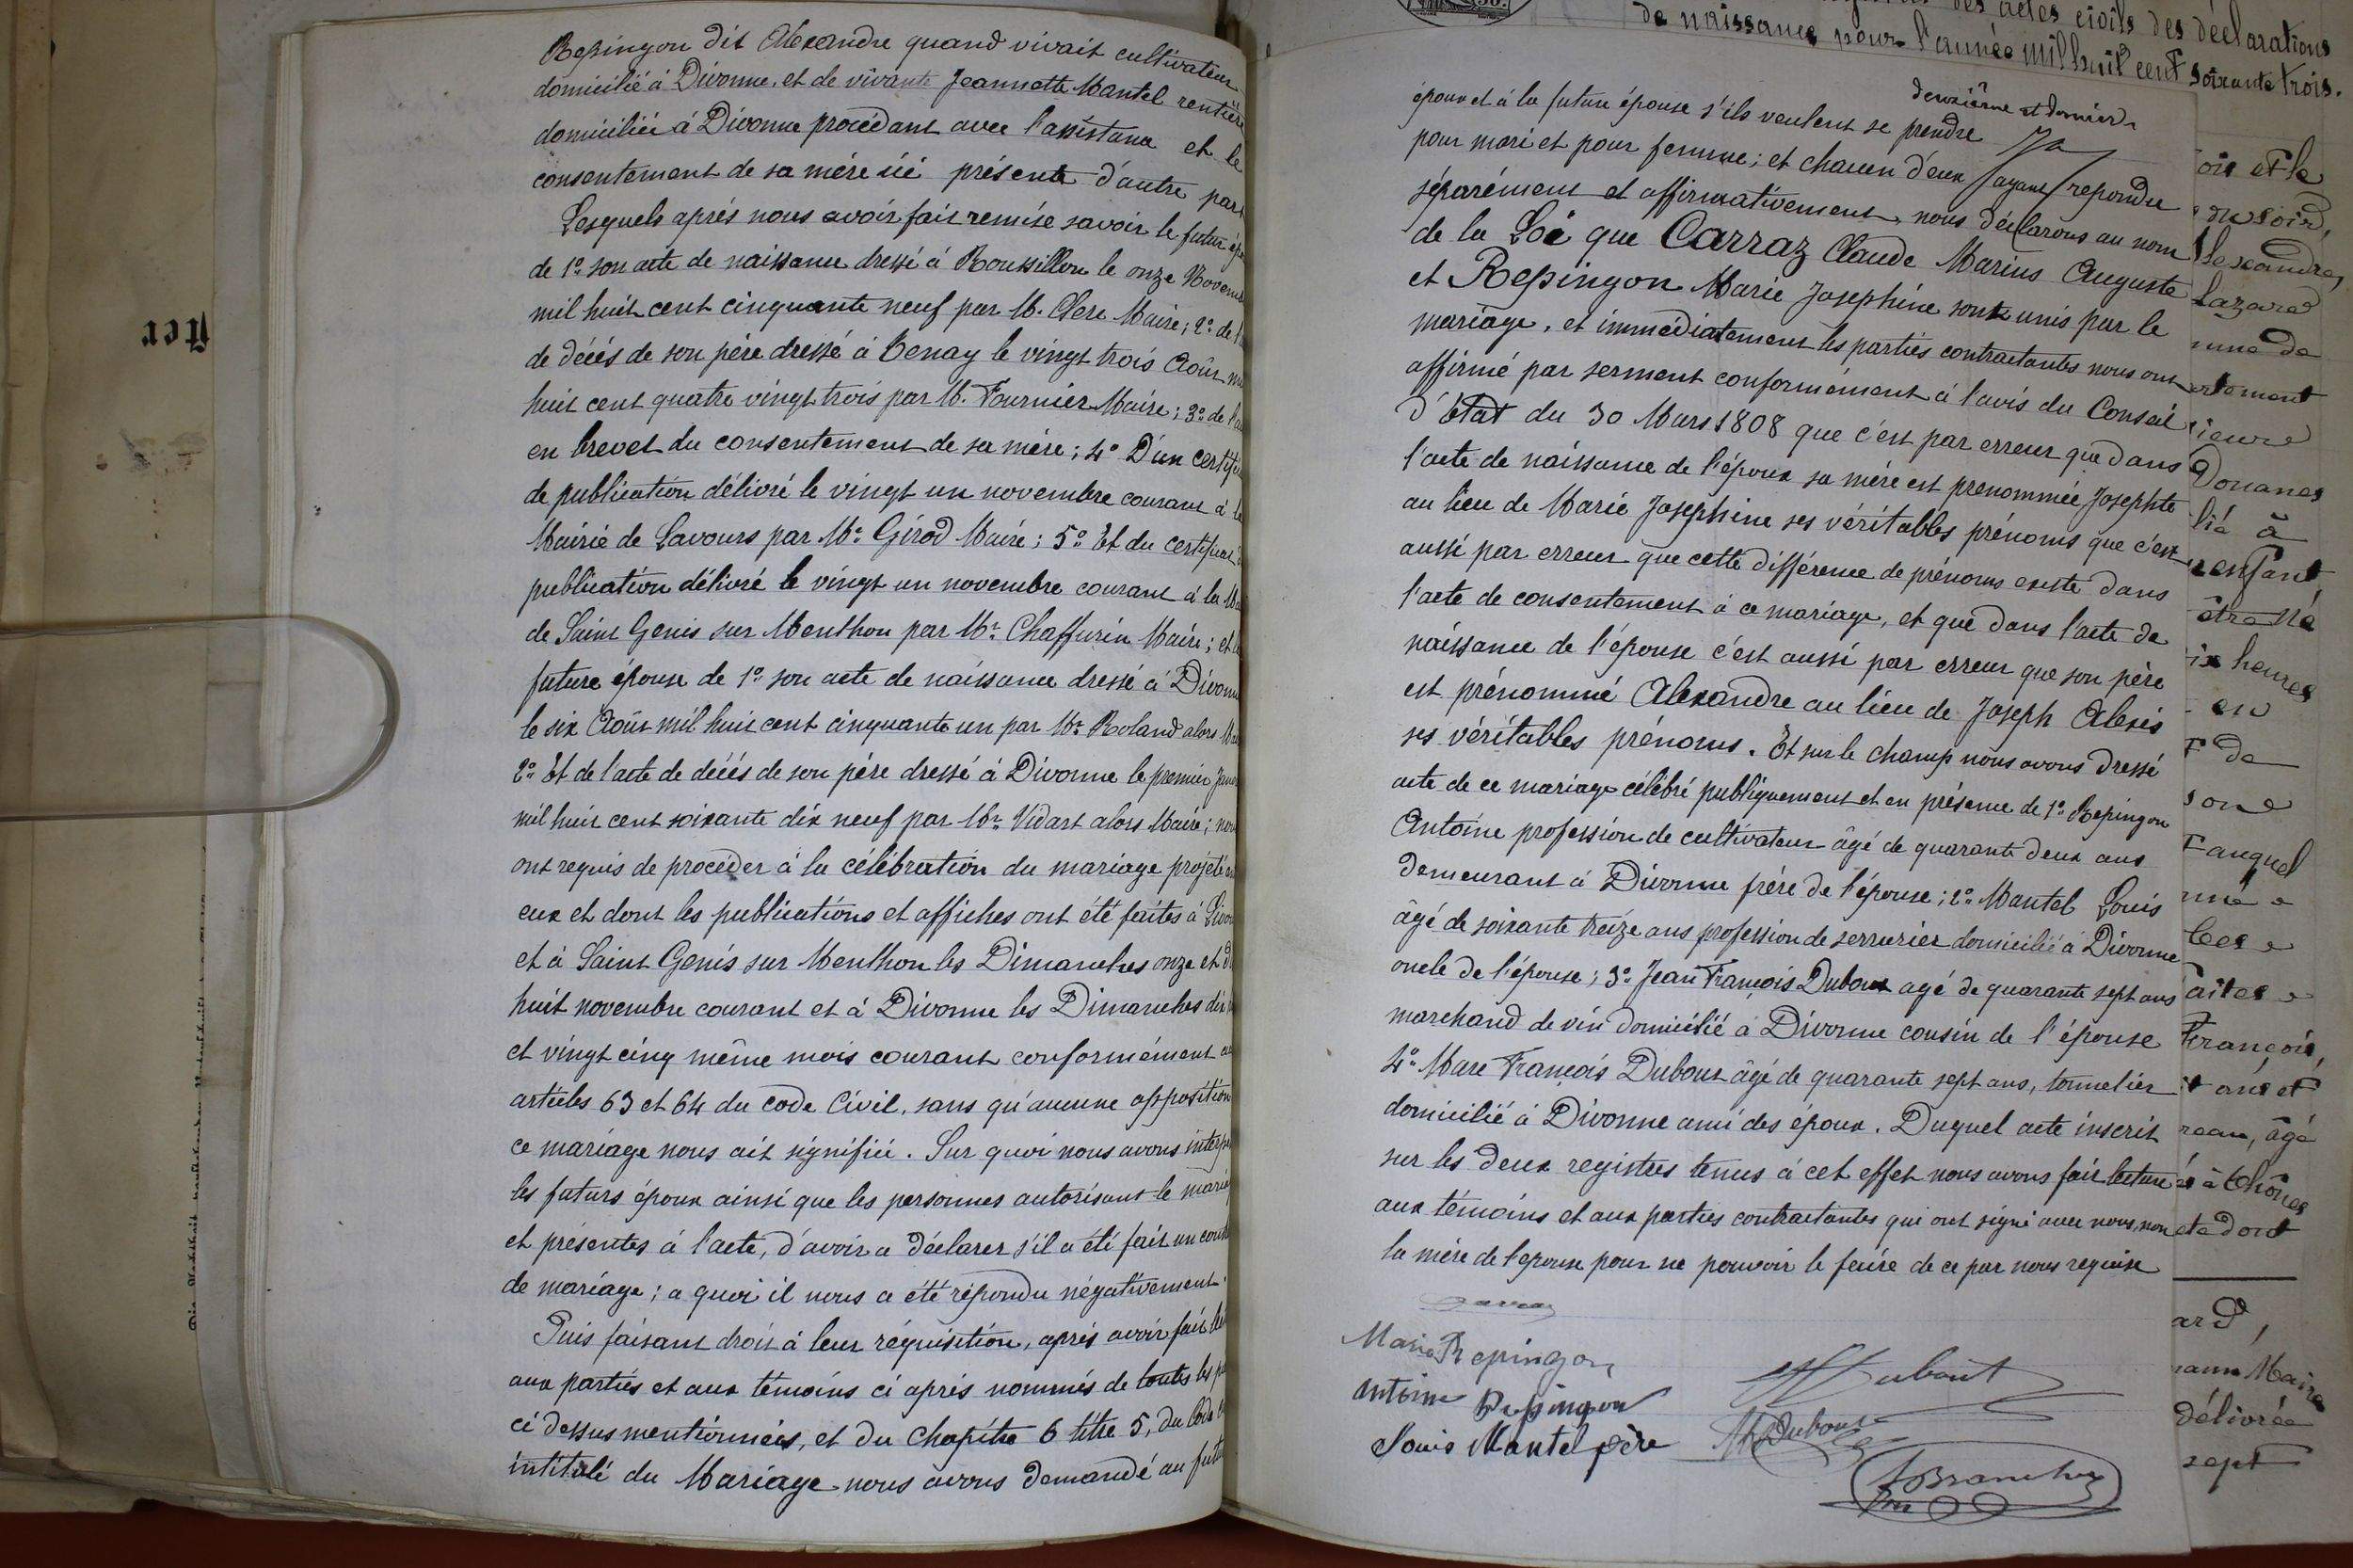 Repingon dit Alexandre quand vivait cultivateur
domicilié à Divonne, et de vivante Jeannette Mantel rentière
domiciliée à Divonne procédant avec l'assistance et le
consentement de sa mère ici présente d'autre part
Lesquels après nous avoir fait remise savoir le futur épo
de 1º son acte de naissance dressé à Roussillon le onze Novem
mil huit cent cinquante neuf par M. Clerc Maire; 2º de l'
de décès de son père dressé à Tenay le vingt trois Août mil
huit cent quatre vingt trois par M. Fournier Maire; 3º de l'a
en brevet du consentement de sa mère; 4º D'un certific
de publication délivré le vingt un novembre courant à la
Mairie de Lavours par Mr Girod Maire; 5º Et du certificat
publication délivré le vingt un novembre courant à la M
de Saint Genis sur Menthon par Mr Chaffurin Maire; et la
future épouse de 1º son acte de naissance dressé à Divonne
le six Août mil huit cent cinquante un par Mr Roland alors M
2º Et de l'acte de décès de son père dressé à Divonne le premier Janv
mil huit cent soixante dix neuf par Mr Vidart alors Maire; nous
ont requis de procéder à la célébration du mariage projeté en
eux et dont les publications et affiches ont été faites à Divon
et à Saint Genis sur Menthon les Dimanches onze et d
huit novembre courant et à Divonne les Dimanches dix
et vingt cinq même mois courant conformément au
articles 63 et 64 du code Civil, sans qu'aucune opposition
ce mariage nous ait signifiée. Sur quoi nous avons interp
les futurs époux ainsi que les personnes autorisant le maria
et présentes à l'acte, d'avoir a déclarer s'il a été fait un cont
de mariage; a quoi il nous a été répondu négativement.
Puis faisant droit à leur réquisition, après avoir fait le
aux parties et aux témoins ci après nommés de toutes les p
ci dessus mentionnées, et du Chapitre 6 titre 5, du Code
intitulé du Mariage nous avons demandé au futur
des actes civils des déclarations
de naissance pour l'année mil huit cent soixante trois.
deuxième et dernier
époux et à la future épouse s'ils veulent se prendre
pour mari et pour femme; et chacun d'eux ayant repondu
séparément et affirmativement, nous déclarons au nom
de la Loi que Carraz Claude Marius Auguste
et Repingon Marie Josephine sont unis par le
mariage, et immédiatement les parties contractantes nous ont
affirmé par serment conformément à l'avis du Conseil
d'Etat du 30 Mars 1808 que c'est par erreur que dans
l'acte de naissance de l'époux sa mère est prenommée Josephte
au lieu de Marie Josephine ses véritables prénoms que c'est
aussi par erreur que cette différence de prénoms existe dans
l'acte de consentement à ce mariage, et que dans l'acte de
naissance de l'épouse c'est aussi par erreur que son père
est prénommé Alexandre au lieu de Joseph Alexis
ses véritables prénoms. Et sur le champ nous avons dressé
acte de ce mariage célébré publiquement et en présence de 1º Repingon
Antoine profession de cultivateur âgé de quarante deux ans
demeurant à Divonne frère de l'épouse; 2º Mantel Louis
âgé de soixante treize ans profession de serrurier domicilié à Divonne
oncle de l'épouse; 3º Jean François Dubout agé de quarante sept ans
marchand de vin domicilié à Divonne cousin de l'épouse
4º Marc François Dubout âgé de quarante sept ans, tonnelier
domicilié à Divonne ami des époux. Duquel acte inscrit
sur les deux registres tenus à cet effet nous avons fait lecture
aux témoins et aux parties contractantes qui ont signé avec nous, non
la mère de l'epouse pour ne pouvoir le faire de ce par nous requise
Carraz
Marie Repingon
Antoine Repingon
Louis Mantel père
Dubout
Dubout
oir et le
du soir,
lexandre,
Lazard
une de
artement
ieure
Douanes
lié à
enfant
être né
ix heures
en
de
sone
auquel
mé
les
aites
François,
ans et
reau, âgé
à Thônes
et dont
ard,
Maire
délivrée
sept